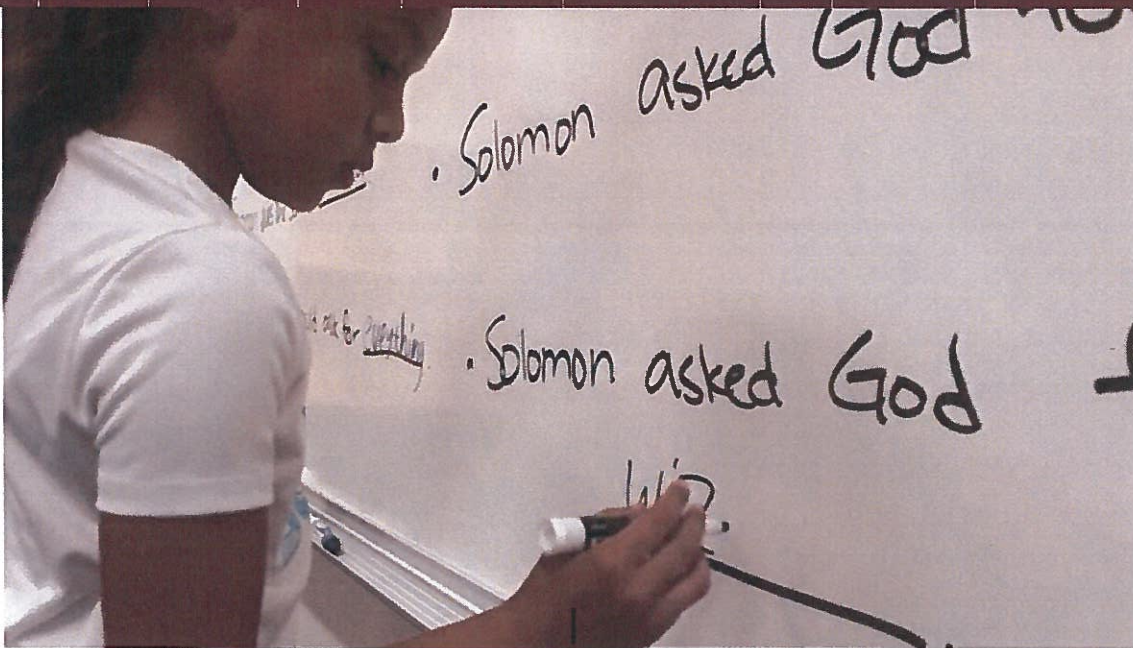 • Solomon asked God
ask for everything
• Solomon asked God
Wis